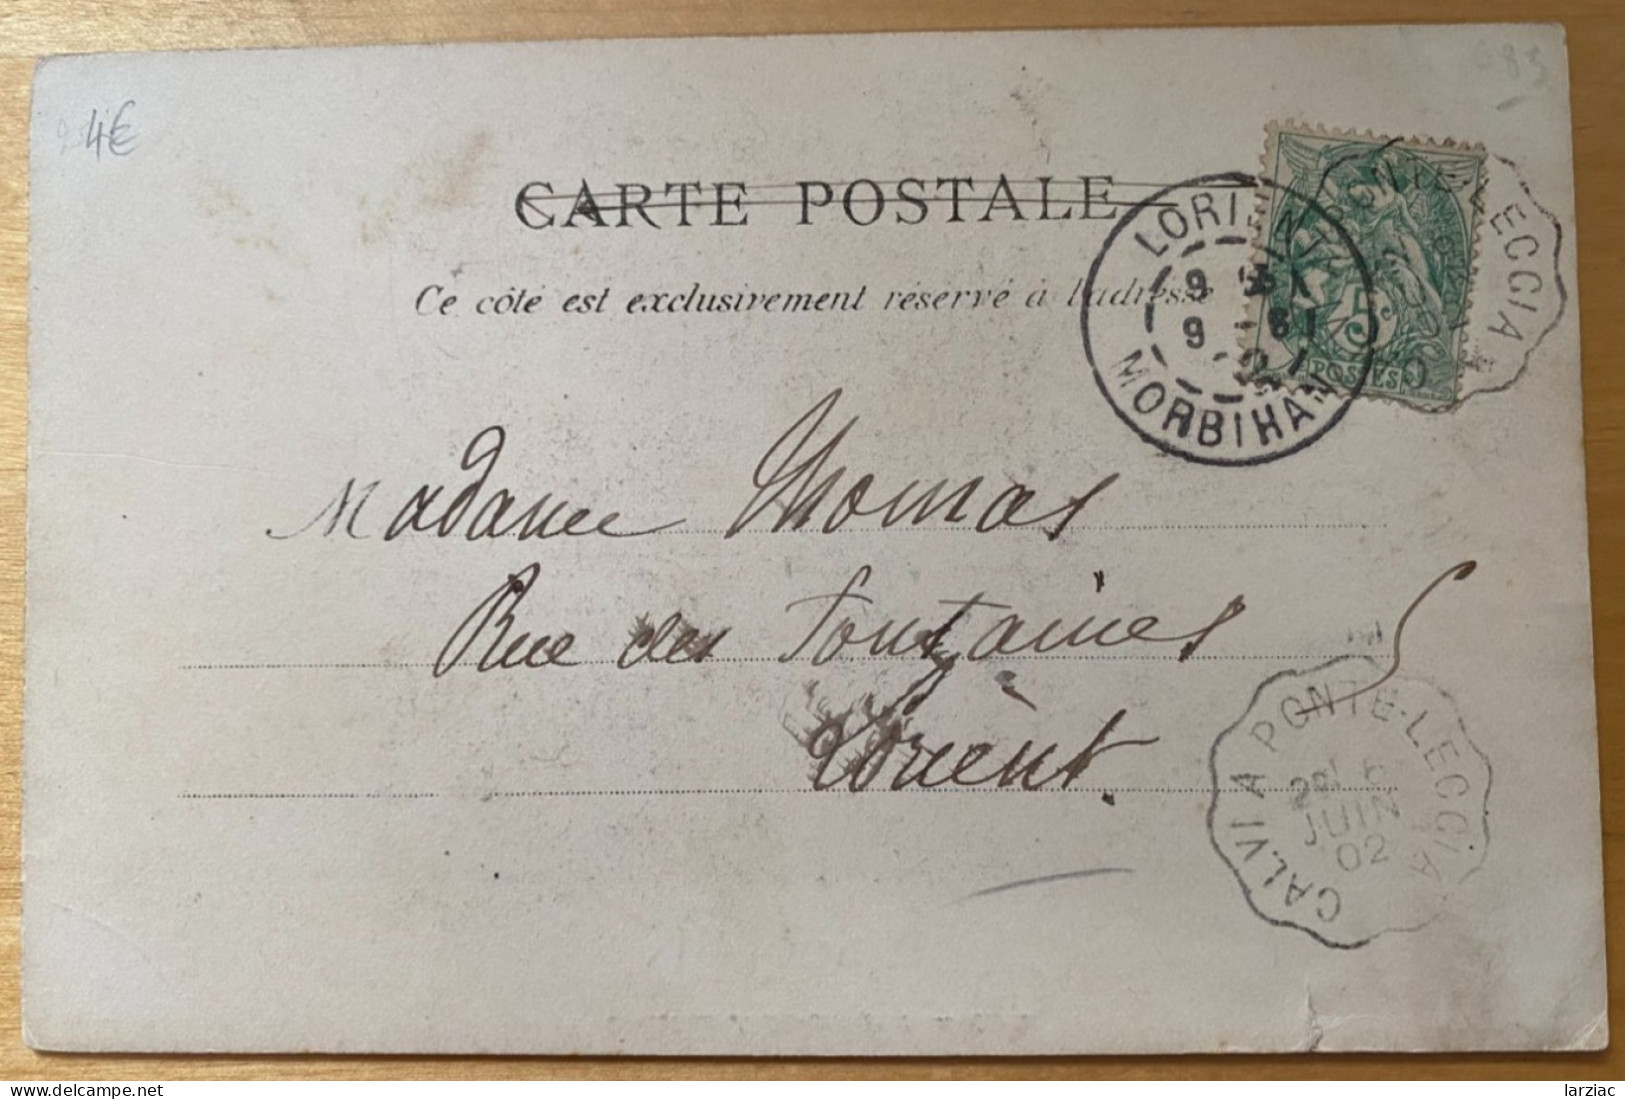 4€
CARTE POSTALE
Ce côté est exclusivement réservé à l'adresse
LORIENT
MORBIHAN
5c
POSTES
PONTE-LECCIA
Madame Thomas
Rue des Fontaines
Lorient.
CALVI A PONTE-LECCIA
JUIN
02
Delcampe.net
larziac